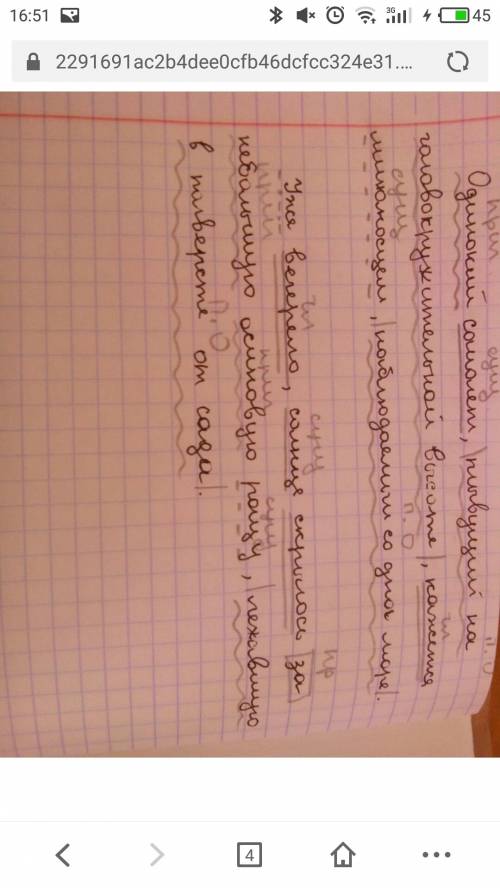 16:51
3G
45
2291691ac2b4dee0cfb46dcfcc324e31....
прил сущ п.о
Одинокий самолет, |плывущий на
гл
головокружительной высоте|, кажется
сущ п.о
миноносцем, |наблюдаемым со дна моря|.
гл сущ пр
Уже вечерело, солнце скрылось |за|
прил прил сущ
небольшую осиновую рощу, |лежавшую
п.о
в полверсте от сада|.
4